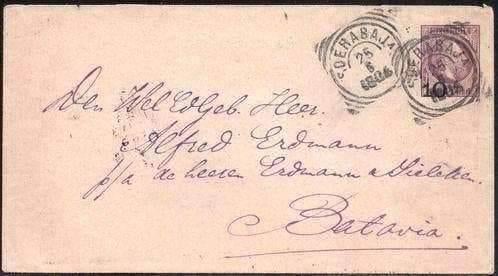 SOERABAJA
25
6
1884
SOERABAJA
10
Den Wel Edgeb. Heer.
Alfred Erdmann
p/a de heeren Erdmann & Sielcken.
Batavia.